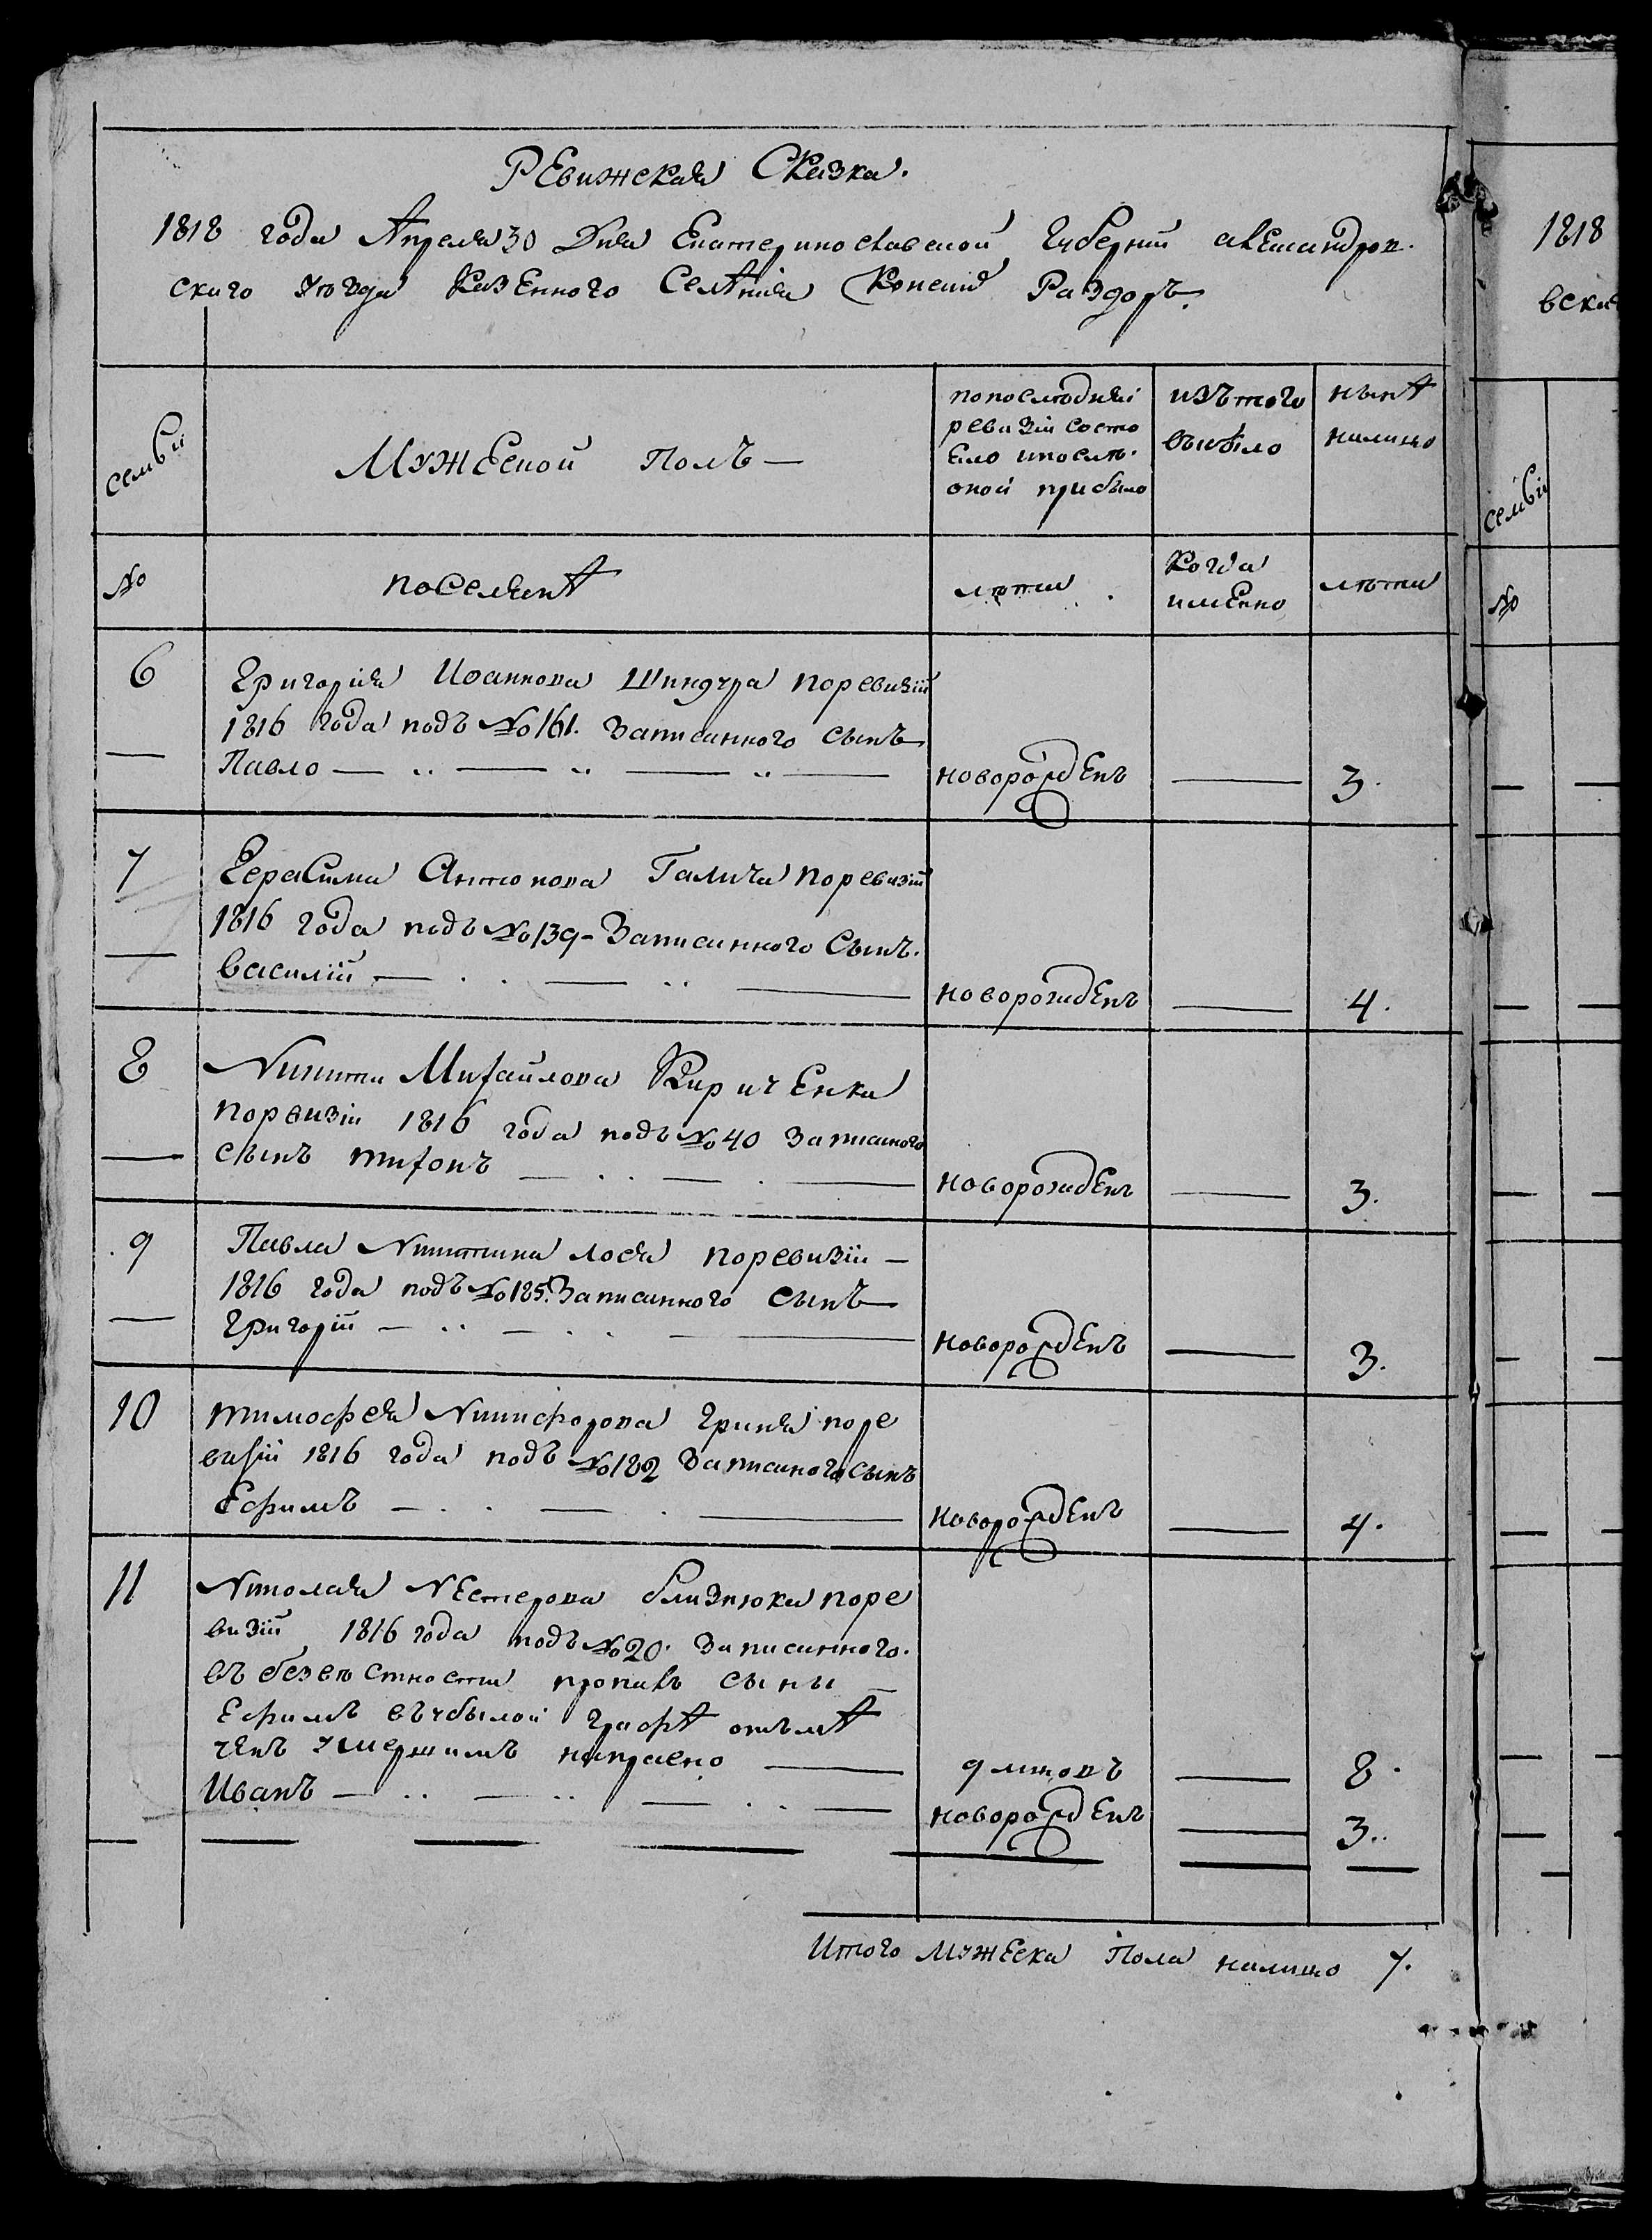 Ревижская Сказка.
1818 года Апреля 30 Дня Екатеринославской Губернии александров-
скаго уѣзда Казенного Селѣнiя Конскiй Раздоръ.
семьи
Мужеской полъ —
попослѣдней
ревизiи состо
Ело ипослѣ
оной прибыло
изътого
выбыло
нынѣ
налицо
№
поселянѣ
лѣта
Когда
имЕнно
лѣта
6
Григорiя Иоаннова Шиндура поревизiй
1816 года подъ №161. Записанного сынъ
Павло — " — " — " —
новорожденъ — 3.
7
Герасима Антонова Галича поревизiй
1816 года подъ №139 - Записанного Сынъ.
василiй —
новорожденъ — 4.
8
Никити Михайлова КиричЕнка
поревизiи 1816 года подъ №40 Записаного
сынъ тихонъ —
новорожденъ — 3.
9
Павла Никитина лося поревизiи —
1816 года подъ №185. Записанного сынъ
Григорiй —
новорожденъ — 3.
10
тимофея Никифорова Гриня поре
визiи 1816 года подъ №182 Записаного сынъ
Ефимъ —
новорожденъ — 4.
11
Николая НЕстерова близнюка поре
визiй 1816 года подъ №20. Записанного.
въ безвѣстности пропавъ сыны —
Ефимъ въубылой графѣ отъмѣ
ченъ умершимъ направно —
9 лѣтовъ — 8.
Иванъ —
новорожденъ — 3.
Итого мужЕска Пола налицо 7.
1818
вска
семьи
№